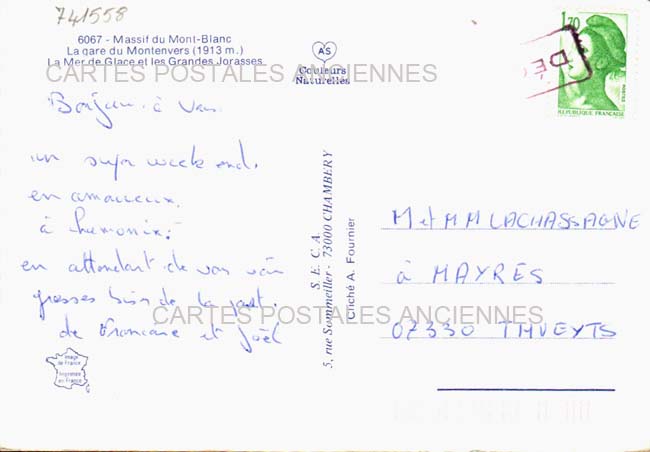 741558
6067 - Massif du Mont-Blanc
La gare du Montenvers (1913 m.)
La Mer de Glace et les Grandes Jorasses
CARTES POSTALES ANCIENNES
AS
Couleurs
Naturelles
1,70
POSTES
REPUBLIQUE FRANÇAISE
DÉ
Bonjour à vous
un super week end.
en amoureux.
à chamonix.
en attendant de vous voir
grosses bises de la part.
de Francane et Joël
S. E. C. A.
5, rue Sommeiller - 73000 CHAMBERY
Cliché A. Fournier
M et MM LACHASSAGNE
à MAYRES
07330 THUEYTS
CARTES POSTALES ANCIENNES
Image
de France
Imprimée
en France